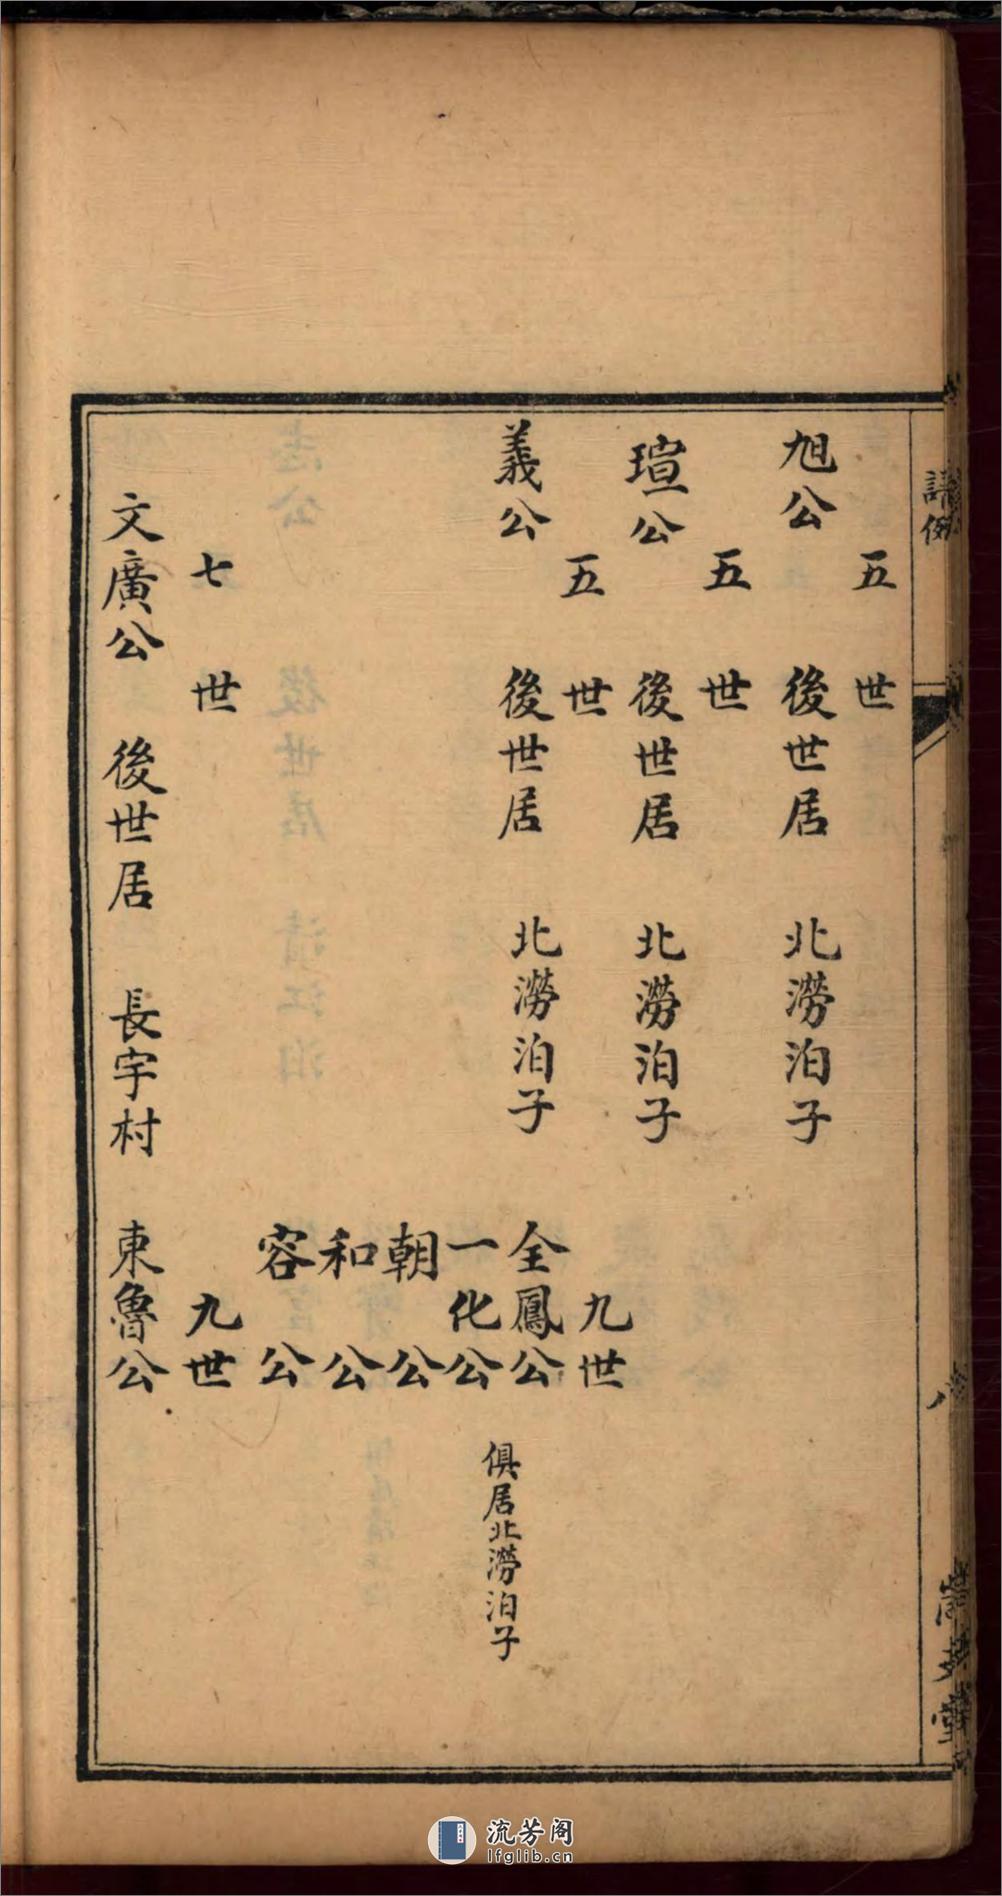 譜例
五世
旭公 後世居 北澇泊子
五世
瑄公 後世居 北澇泊子
五世 九世
義公 後世居 北澇泊子 全鳳公
一化公 俱居北澇泊子
朝公
和公
容公
七世 九世
文廣公 後世居 長宇村 東魯公
流芳阁
lfglib.cn